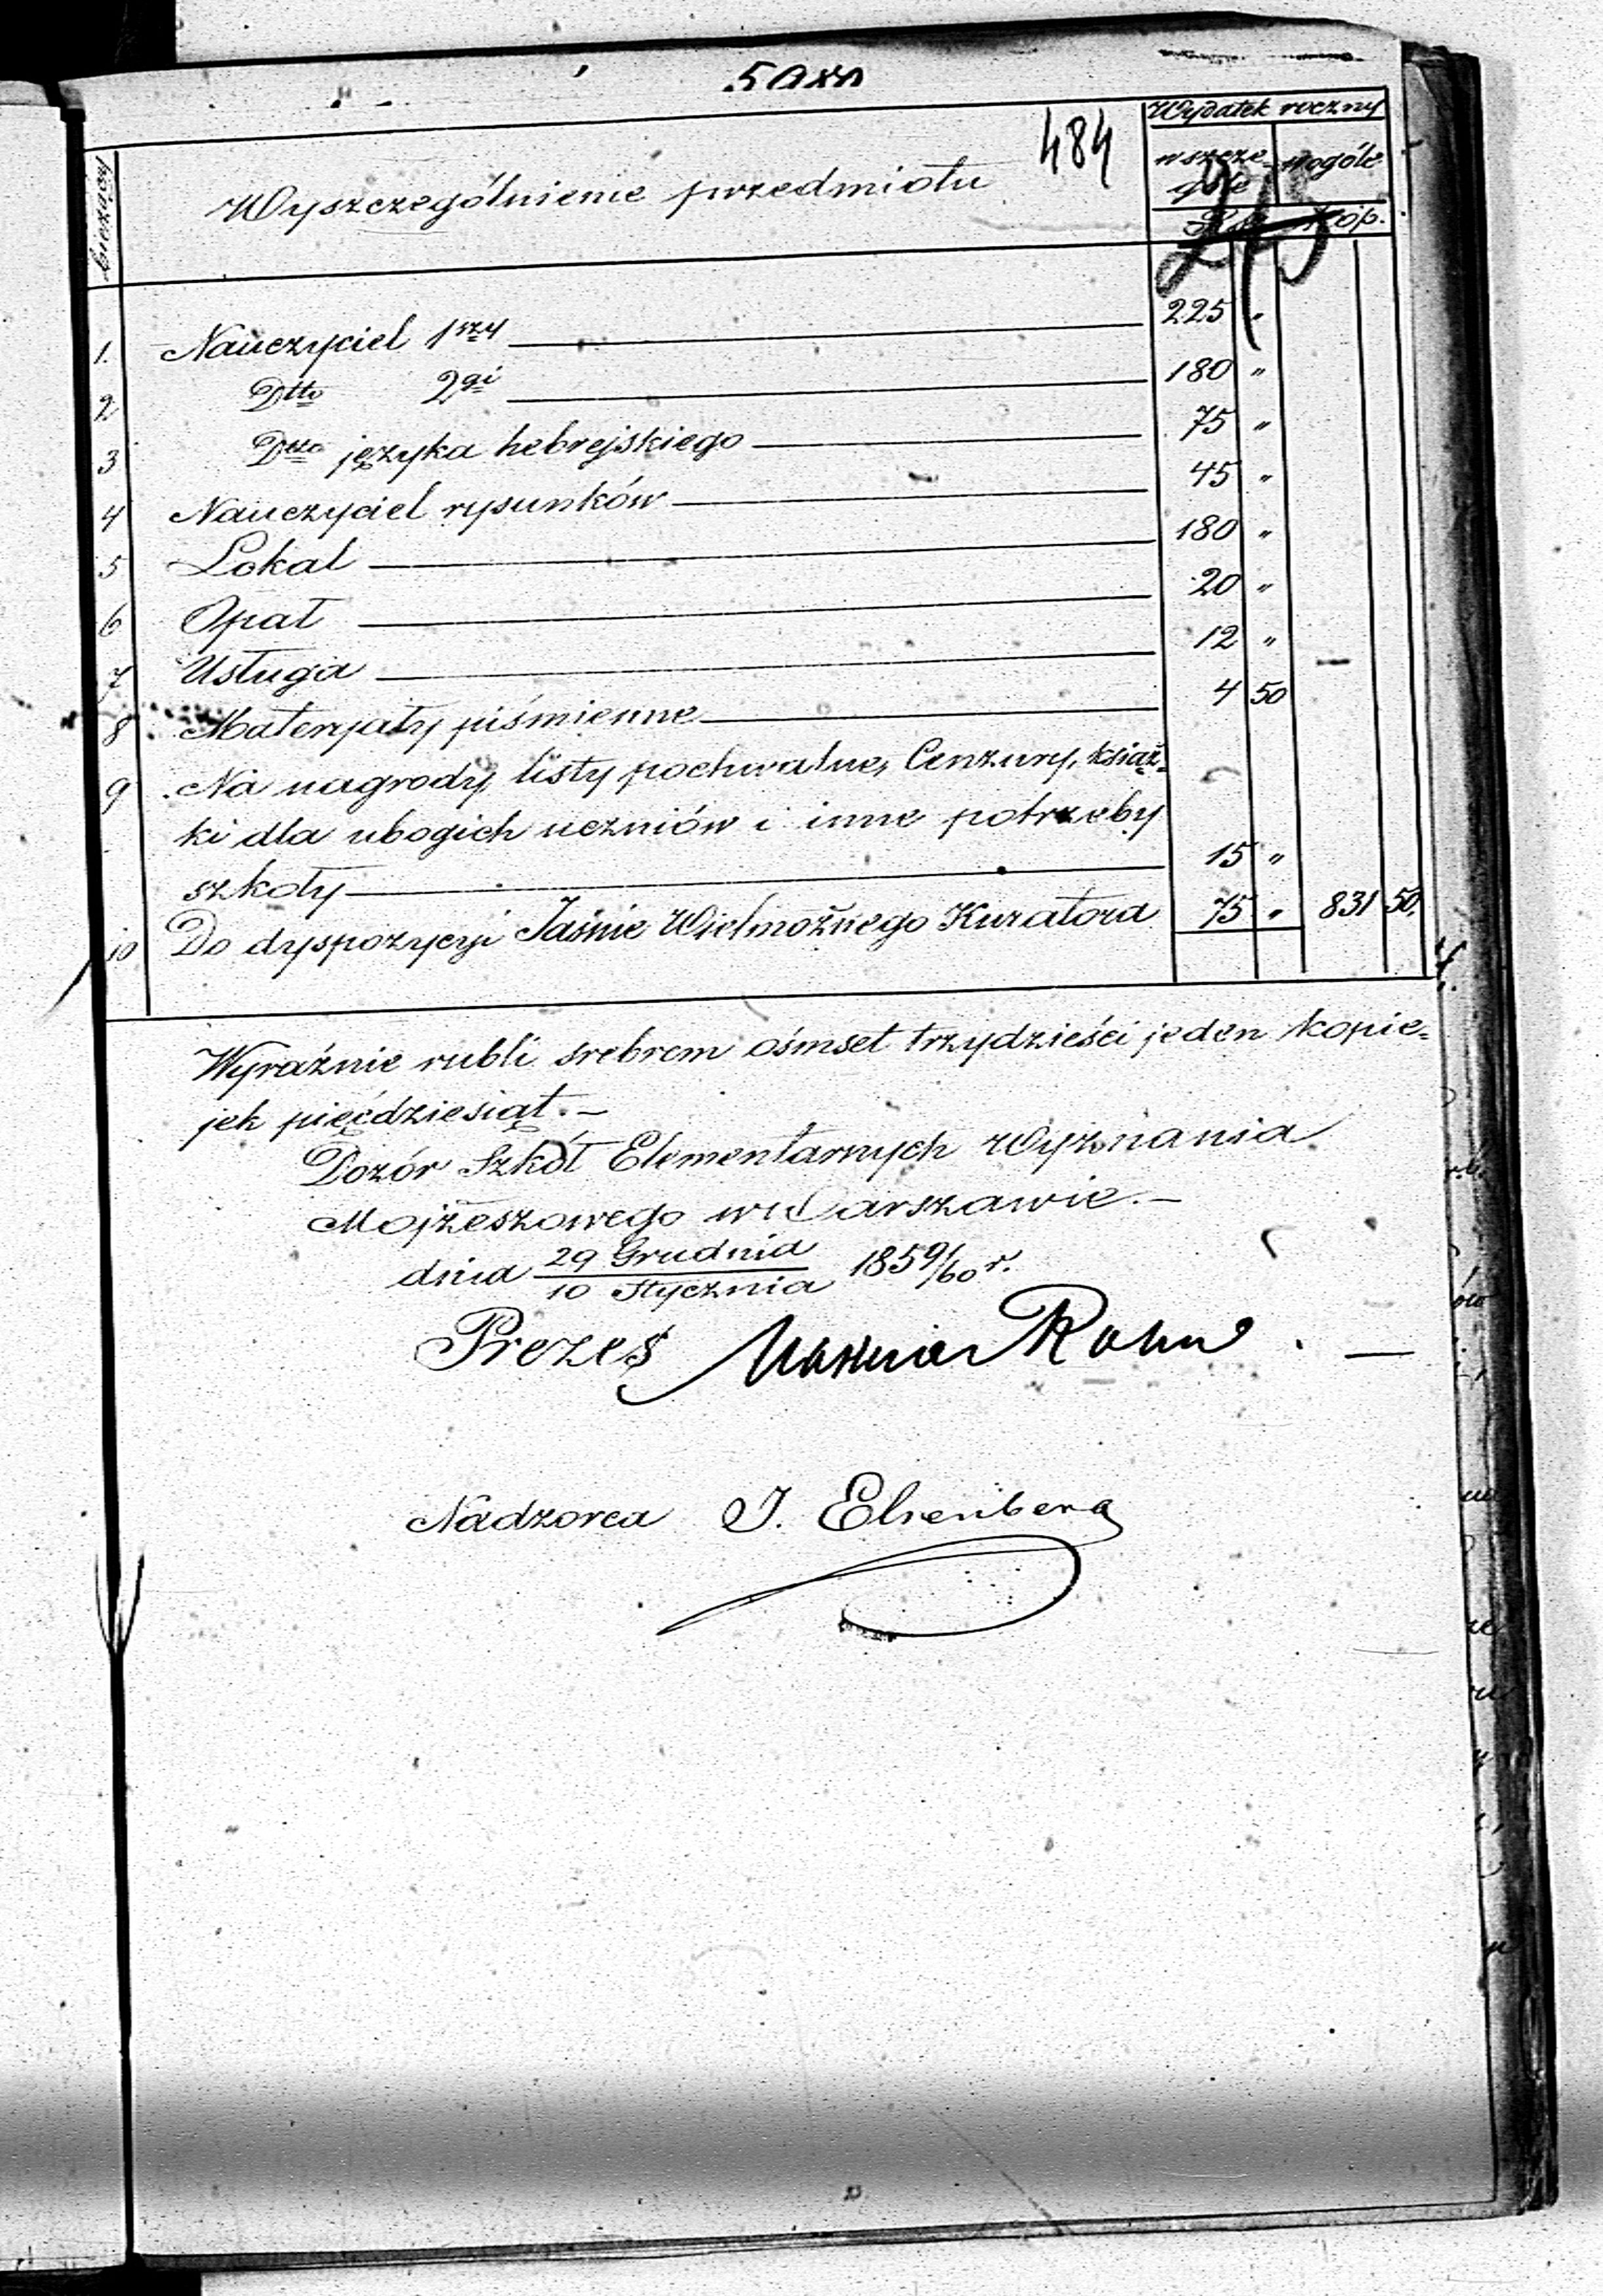 484
Wydatek roczny
bieżący
Wyszczególnienie przedmiotu
w szcze- wogóle
góle
Kóp.
1. Nauczyciel 1szy 225 "
2 Dtto 2gi 180 "
3 Dtto języka hebrejskiego 75 "
4 Nauczyciel rysunków 45 "
5 Lokal 180 "
6 Opał 20 "
7 Usługa 12 "
8 Materyały piśmienne 4 50
9 Na nagrody, listy pochwalne, Cenzury, książ=
ki dla ubogich uczniów i inne potrzeby
szkoły 15 "
10 Do dyspozycyi Jaśnie Wielmożnego Kuratora 75 " 831 50.
Wyraźnie rubli srebrem ośmset trzydzieści jeden kopie=
jek pięćdziesiąt.—
Dozór Szkół Elementarnych Wyznania
Mojżeszowego w Warszawie.—
dnia 29 Grudnia / 10 Stycznia 1859/60 r.
Prezes
Nadzorca J. Elsenberg